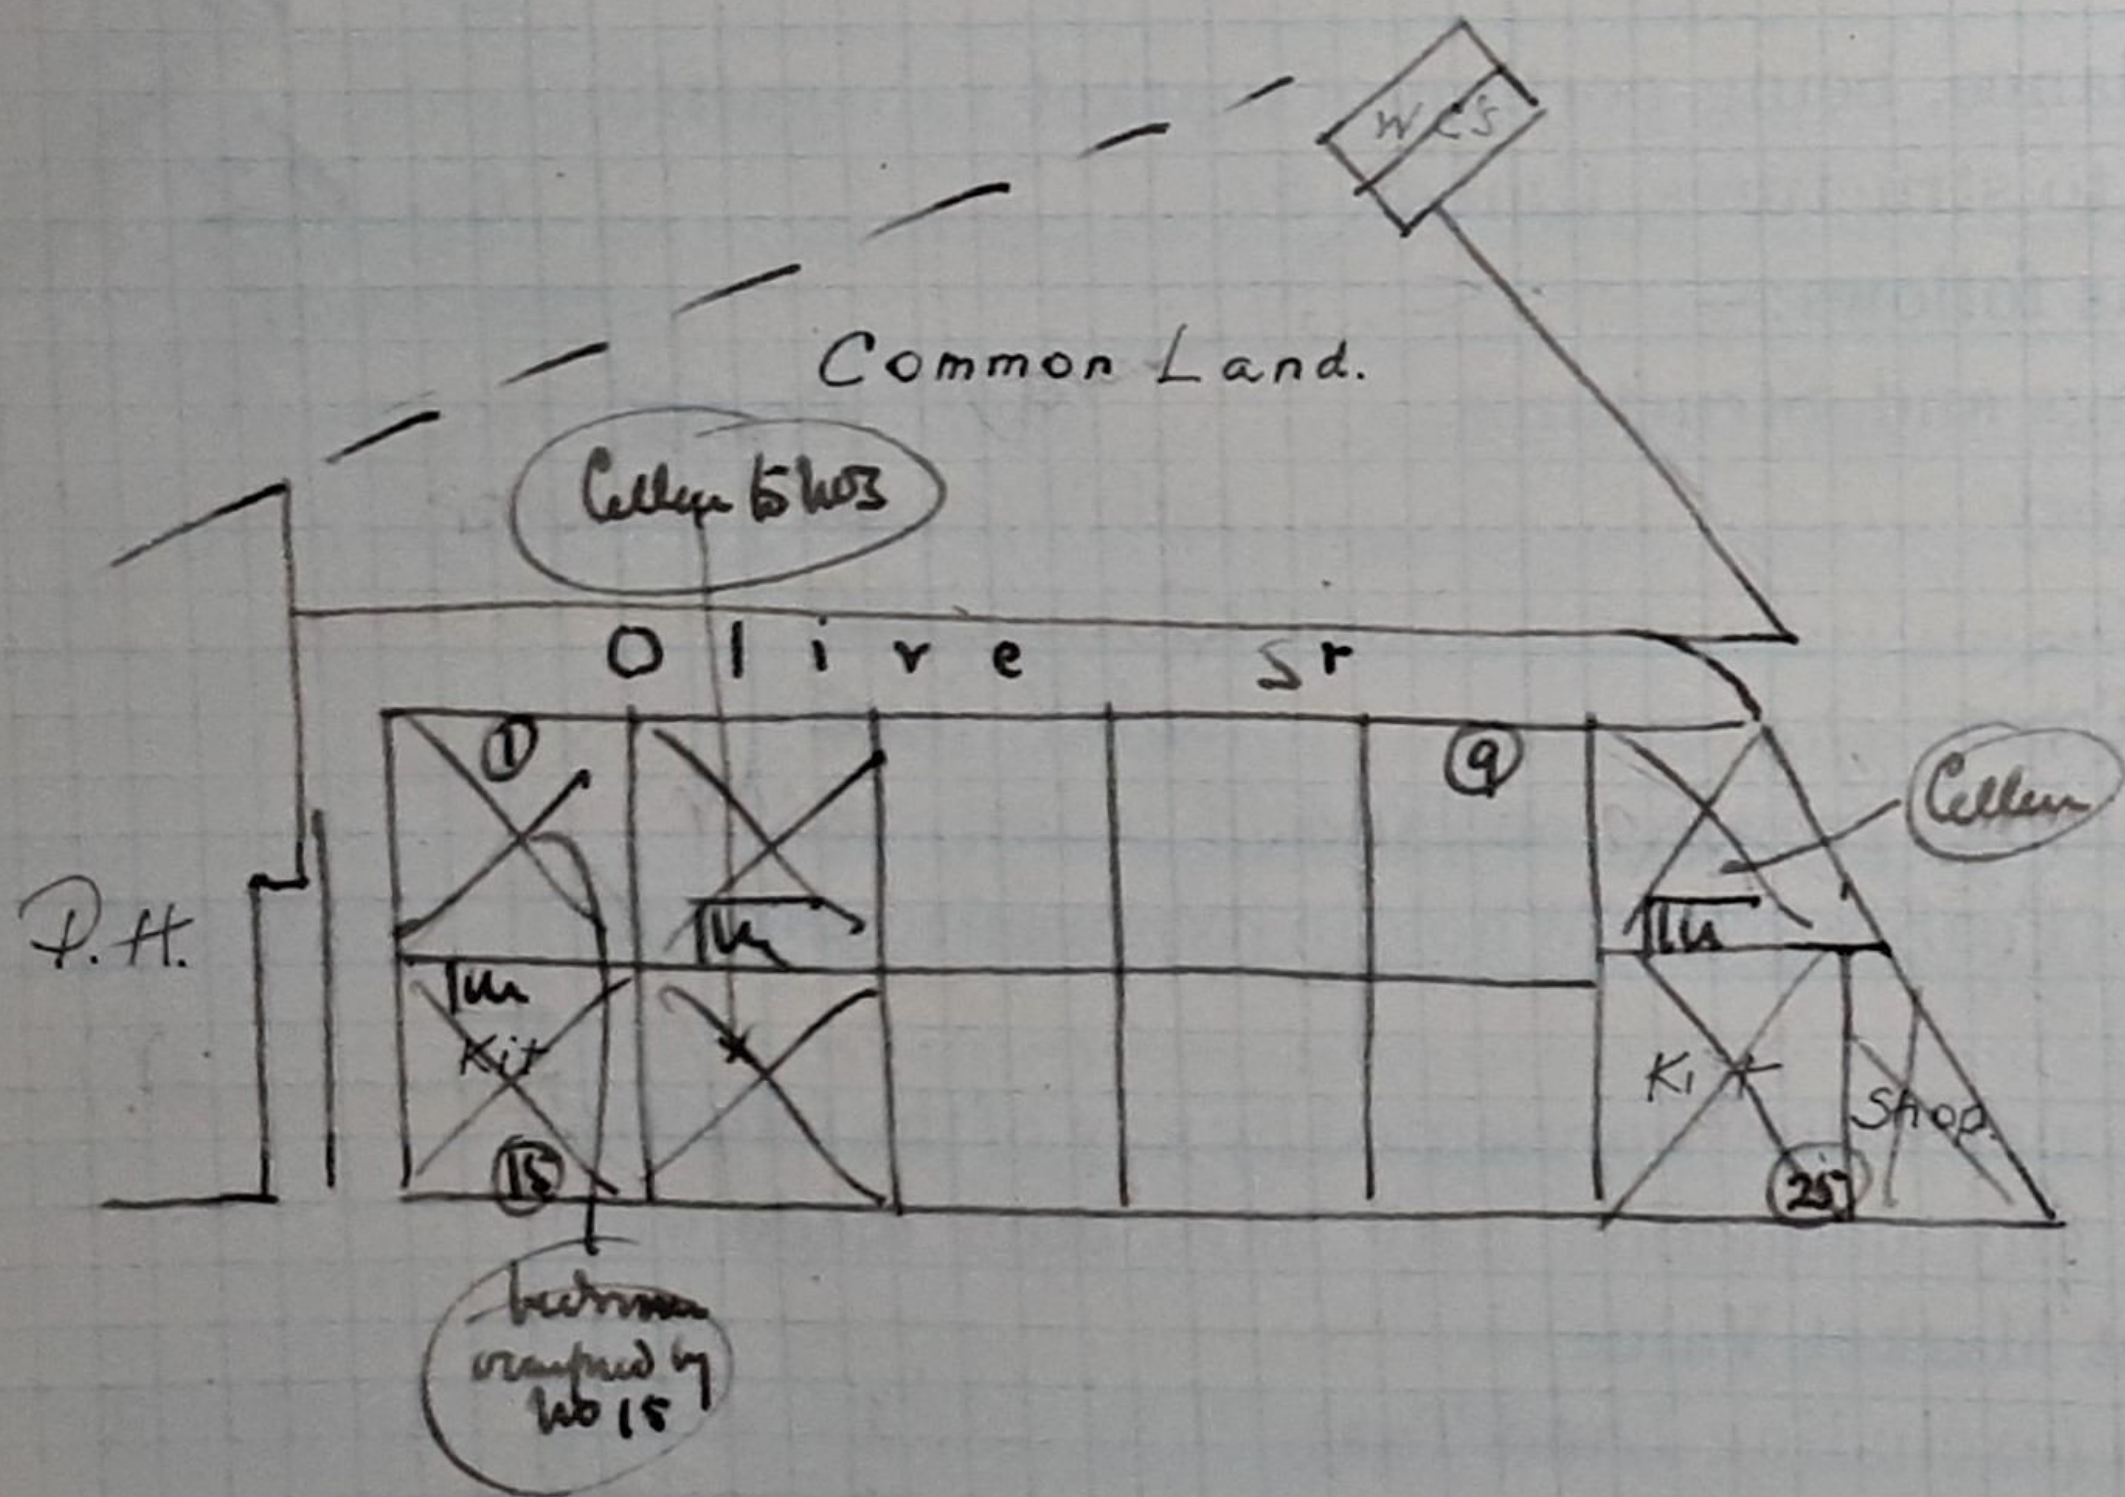 W Cs
Common Land.
Cellar to No 3
Olive St
1
9
Cellar
P.H.
Kit
Kit
Shop.
15
25
bedroom
occupied by
No 15